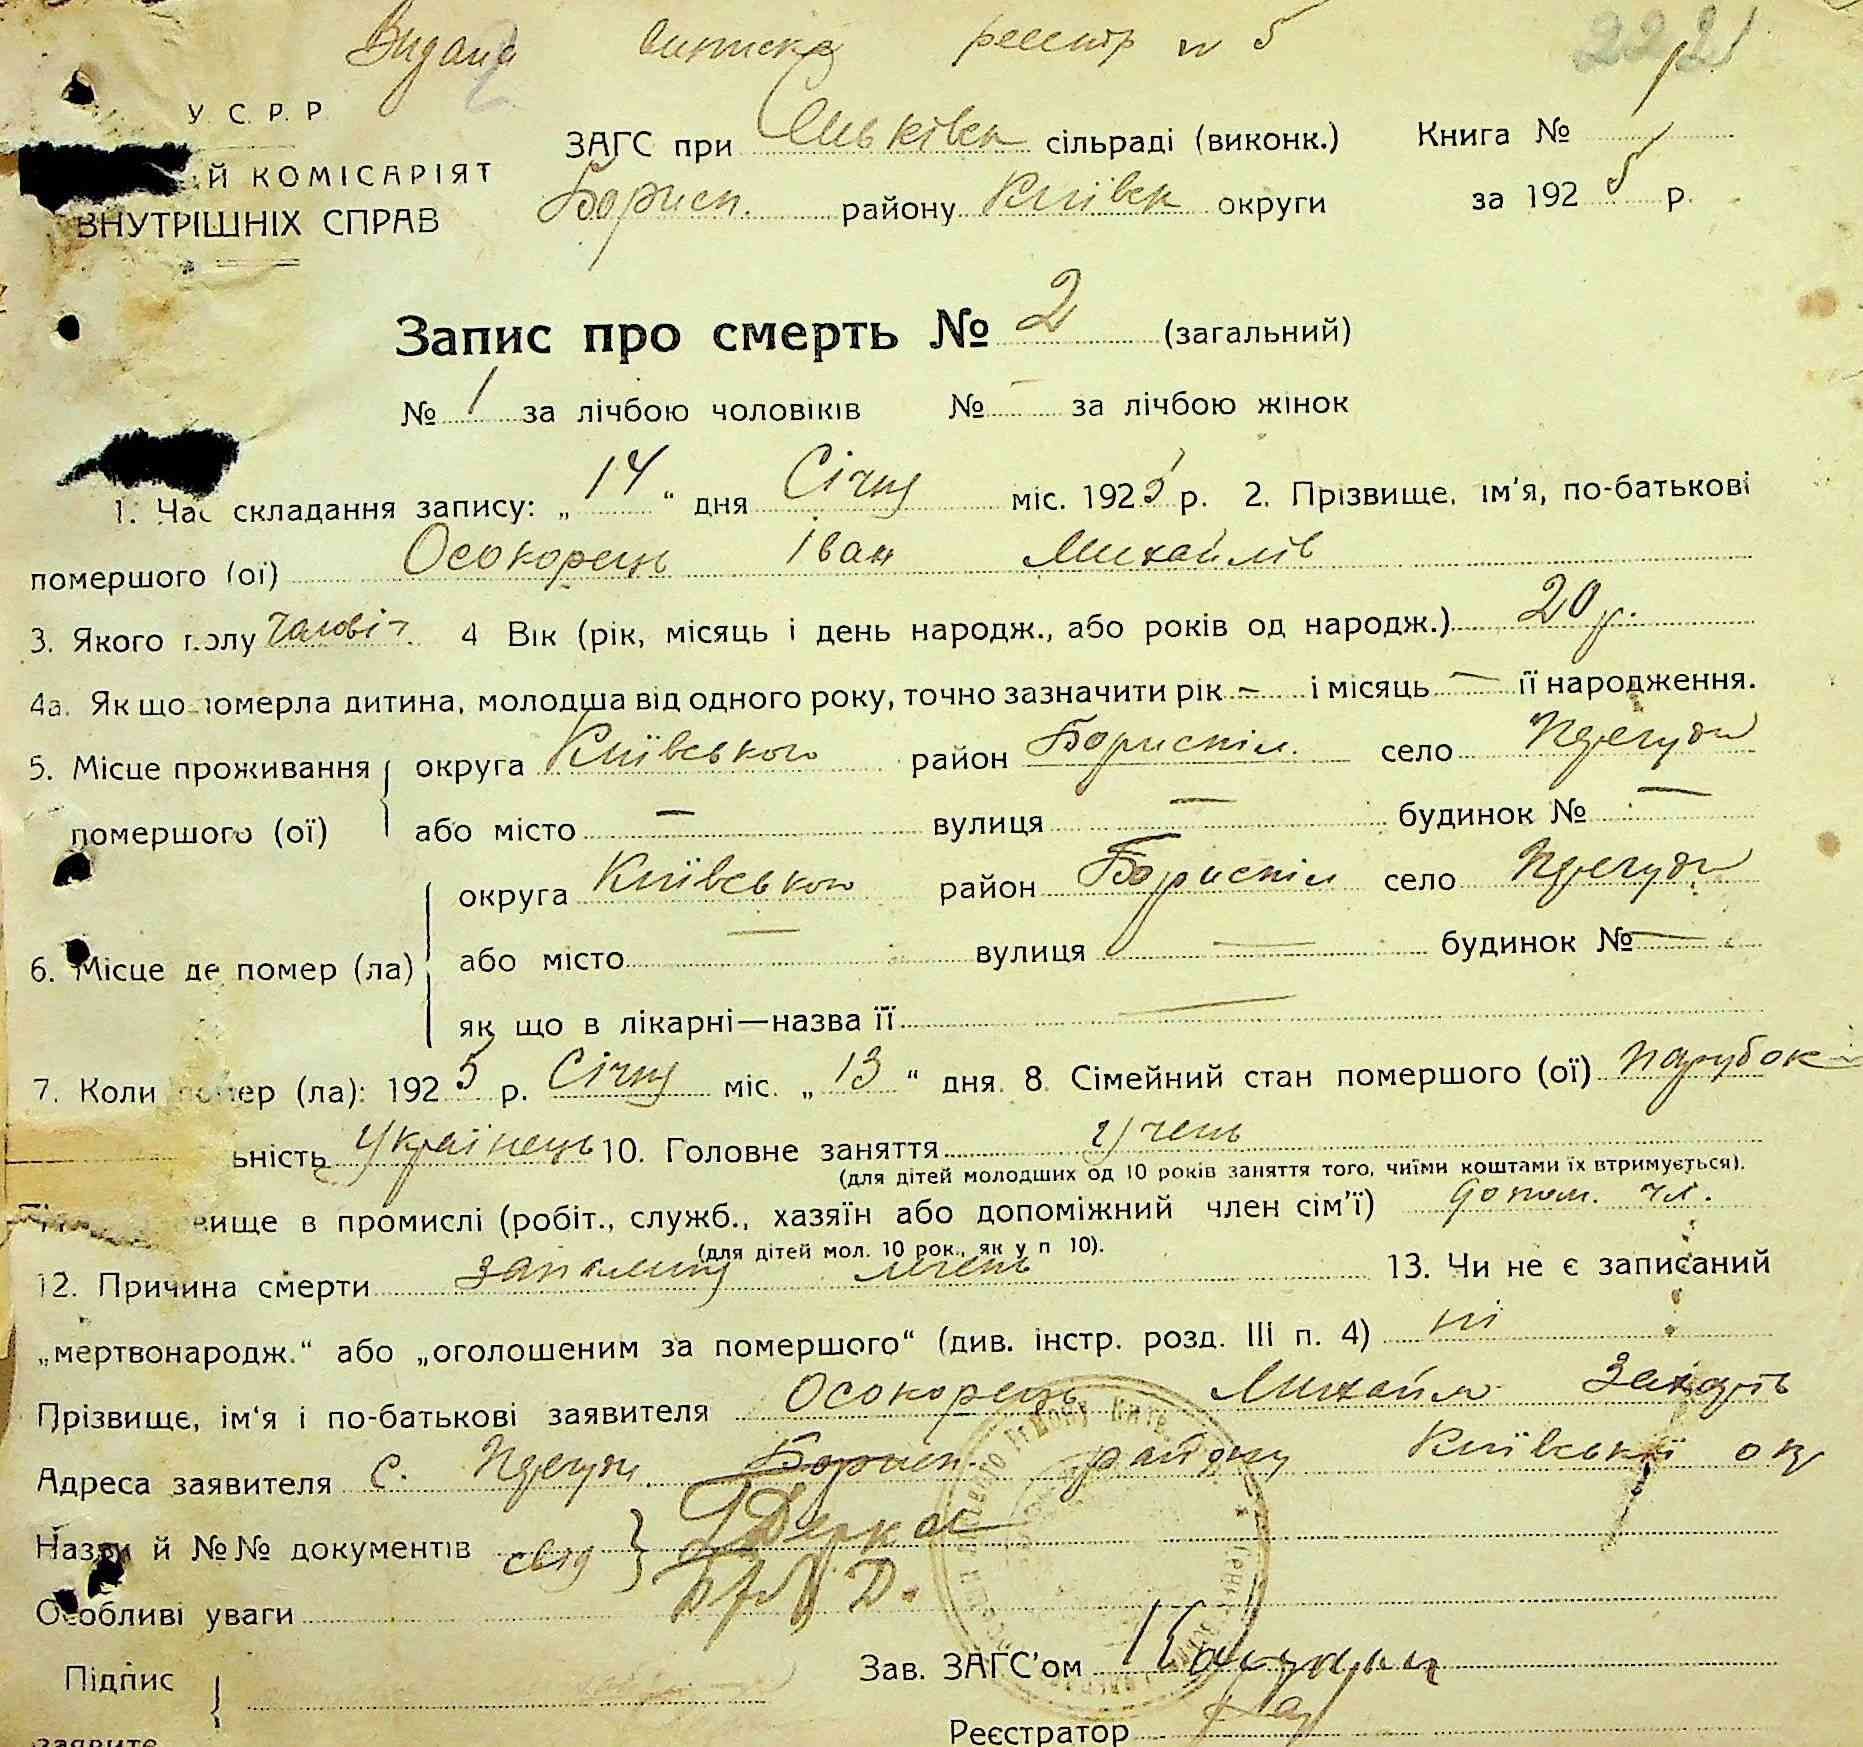 Видана виписка реєстр № 5
У. С. Р. Р.
ЗАГС при Сеньківск сільраді (виконк.) Книга № 1
Й КОМІСАРІЯТ
ВНУТРІШНІХ СПРАВ
Борисп. району Київск округи за 1925 р.
Запис про смерть № 2 (загальний)
№ 1 за лічбою чоловіків № — за лічбою жінок
1. Час складання запису: „14“ дня Січня міс. 1925 р. 2. Прізвище, ім'я, по-батькові
помершого (ої) Осокорець Іван Михайлів
3. Якого полу чаловіч. 4 Вік (рік, місяць і день народж., або років од народж.) 20 р.
4а. Як що померла дитина, молодша від одного року, точно зазначити рік — і місяць — її народження.
5. Місце проживання округа Київського район Бориспіл. село
помершого (ої) або місто — вулиця — будинок № —
округа Київського район Бориспіл село
6. Місце де помер (ла) або місто — вулиця — будинок № —
як що в лікарні—назва її —
7. Коли помер (ла): 1925 р. Січня міс. „13“ дня. 8. Сімейний стан помершого (ої) парубок
ьність Українець 10. Головне заняття учень
(для дітей молодших од 10 років заняття того, чиїми коштами їх втримується).
вище в промислі (робіт., служб., хазяїн або допоміжний член сім'ї) допом. чл.
(для дітей мол. 10 рок., як у п 10).
12. Причина смерти запалиня легень 13. Чи не є записаний
„мертвонародж.“ або „оголошеним за помершого“ (див. інстр. розд. III п. 4) ні
Прізвище, ім'я і по-батькові заявителя Осокорець Михайло
Адреса заявителя с. Борисп. району Київської окр
Назви й №№ документів свід Деркас
Особливі уваги
Підпис Зав. ЗАГС'ом
заявите
Реєстратор